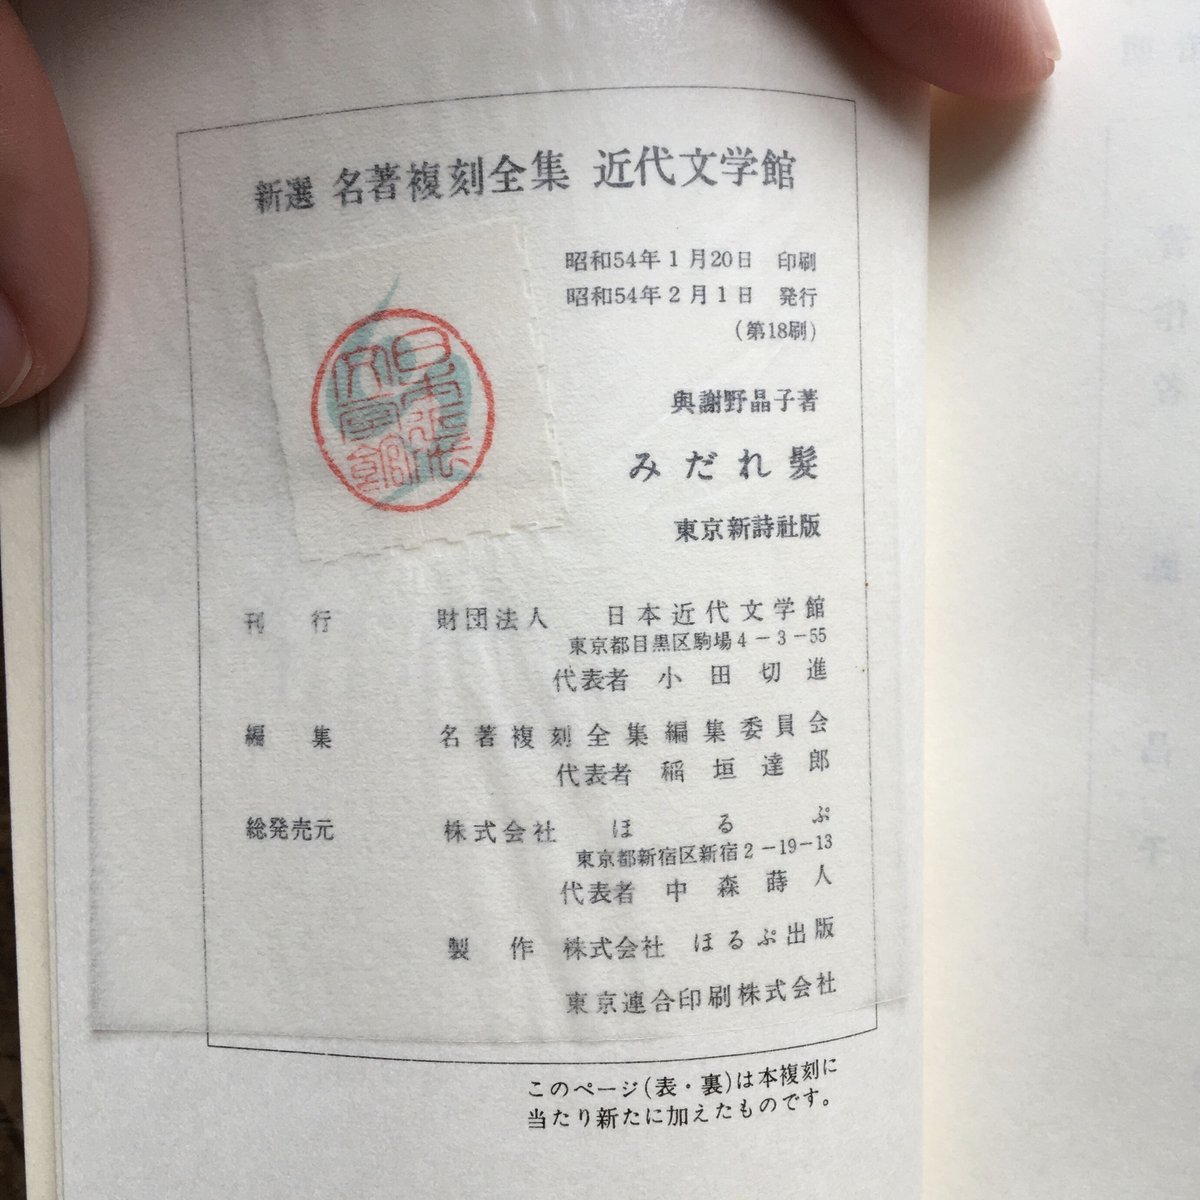 新選 名著複刻全集 近代文学館
昭和54年1月20日 印刷
昭和54年2月1日 発行
(第18刷)
與謝野晶子著
みだれ髪
東京新詩社版
日本近代文学館
刊行 財団法人 日本近代文学館
東京都目黒区駒場4-3-55
代表者 小田切進
編集 名著複刻全集編集委員会
代表者 稲垣達郎
総発売元 株式会社 ほるぷ
東京都新宿区新宿2-19-13
代表者 中森蒔人
製作 株式会社 ほるぷ出版
東京連合印刷株式会社
このページ(表・裏)は本複刻に
当たり新たに加えたものです。